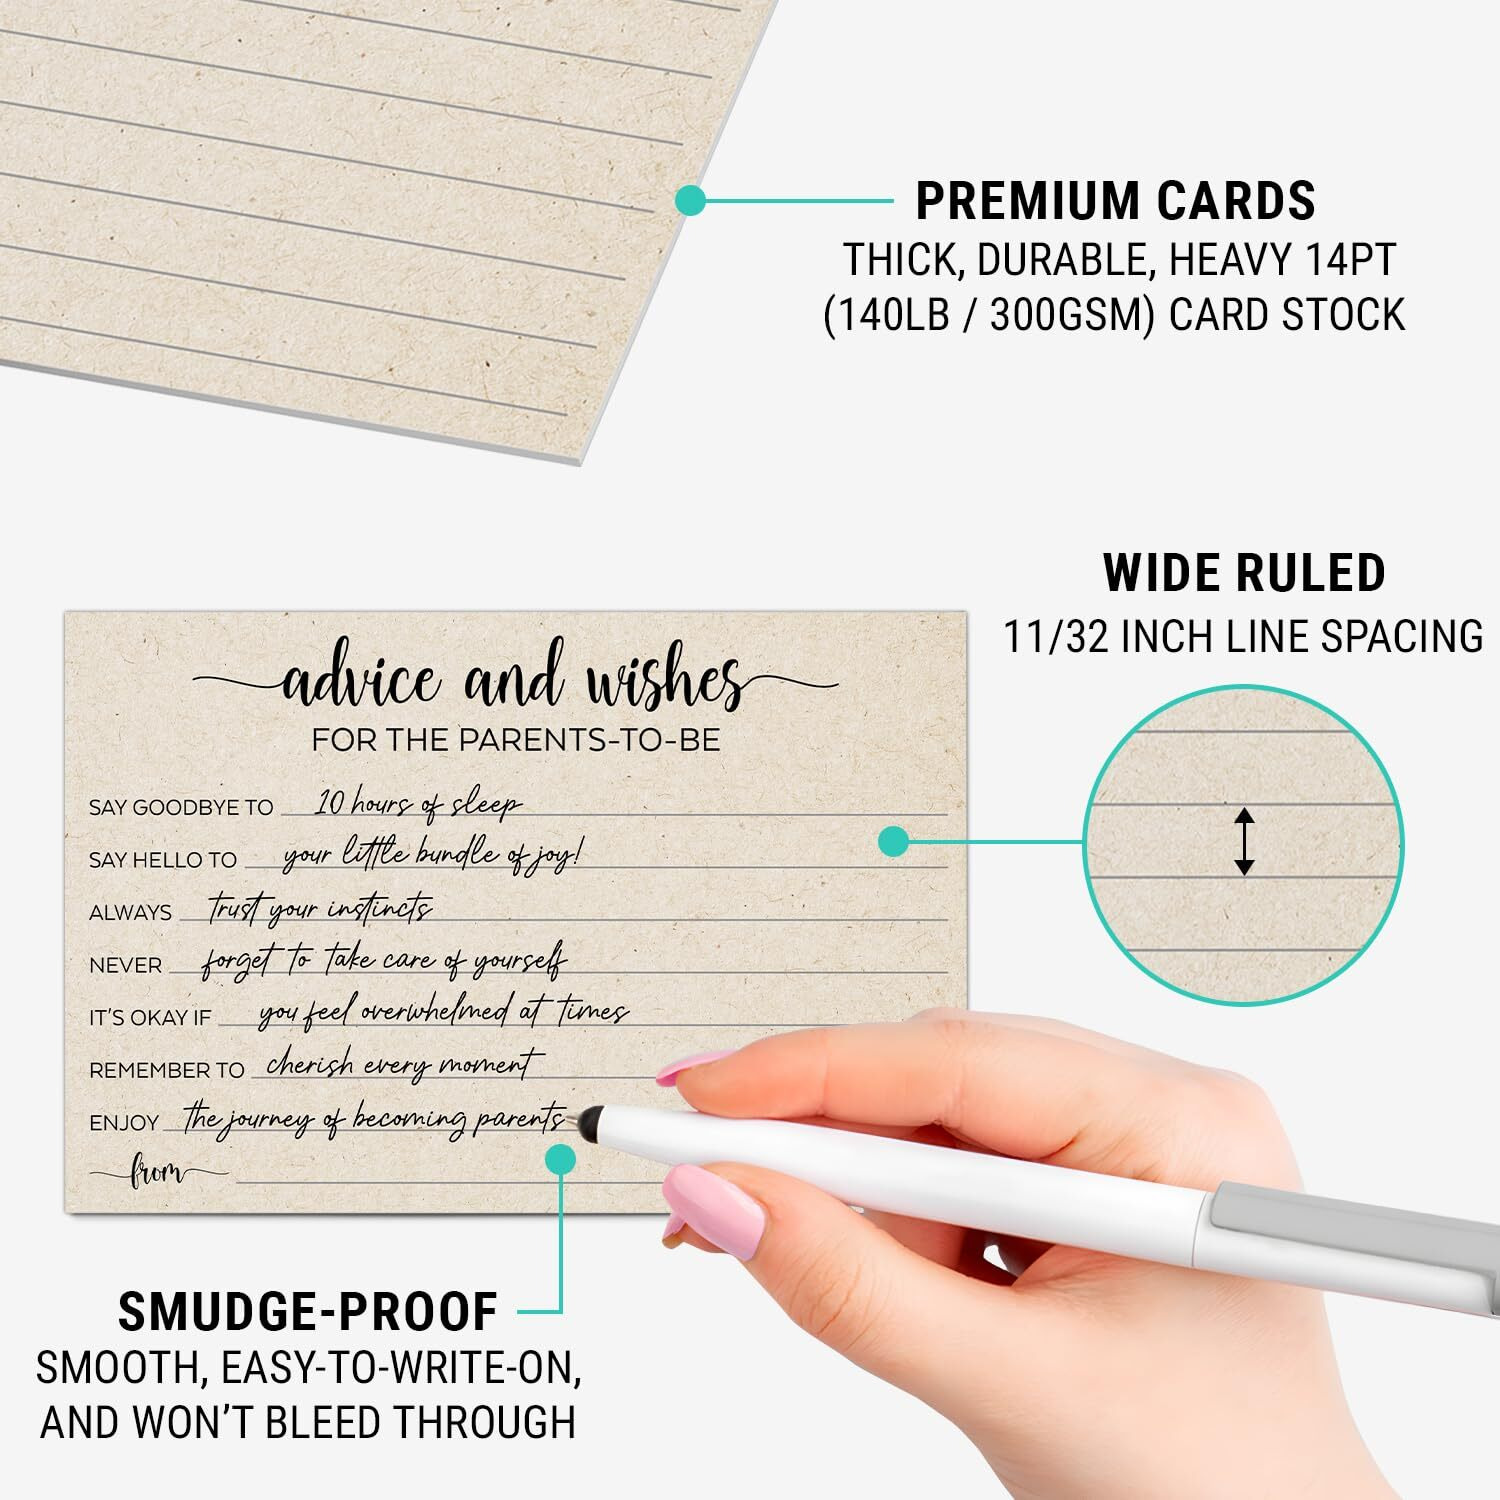 PREMIUM CARDS
THICK, DURABLE, HEAVY 14PT
(140LB / 300GSM) CARD STOCK
WIDE RULED
11/32 INCH LINE SPACING
advice and wishes
FOR THE PARENTS-TO-BE
SAY GOODBYE TO 10 hours of sleep
SAY HELLO TO your little bundle of joy!
ALWAYS trust your instincts
NEVER forget to take care of yourself
IT'S OKAY IF you feel overwhelmed at times
REMEMBER TO cherish every moment
ENJOY the journey of becoming parents
from
SMUDGE-PROOF
SMOOTH, EASY-TO-WRITE-ON,
AND WON'T BLEED THROUGH